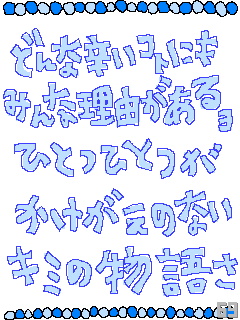 どんな辛いコトにも
みんな理由があるョ
ひとつひとつが
かけがえのない
キミの物語さ